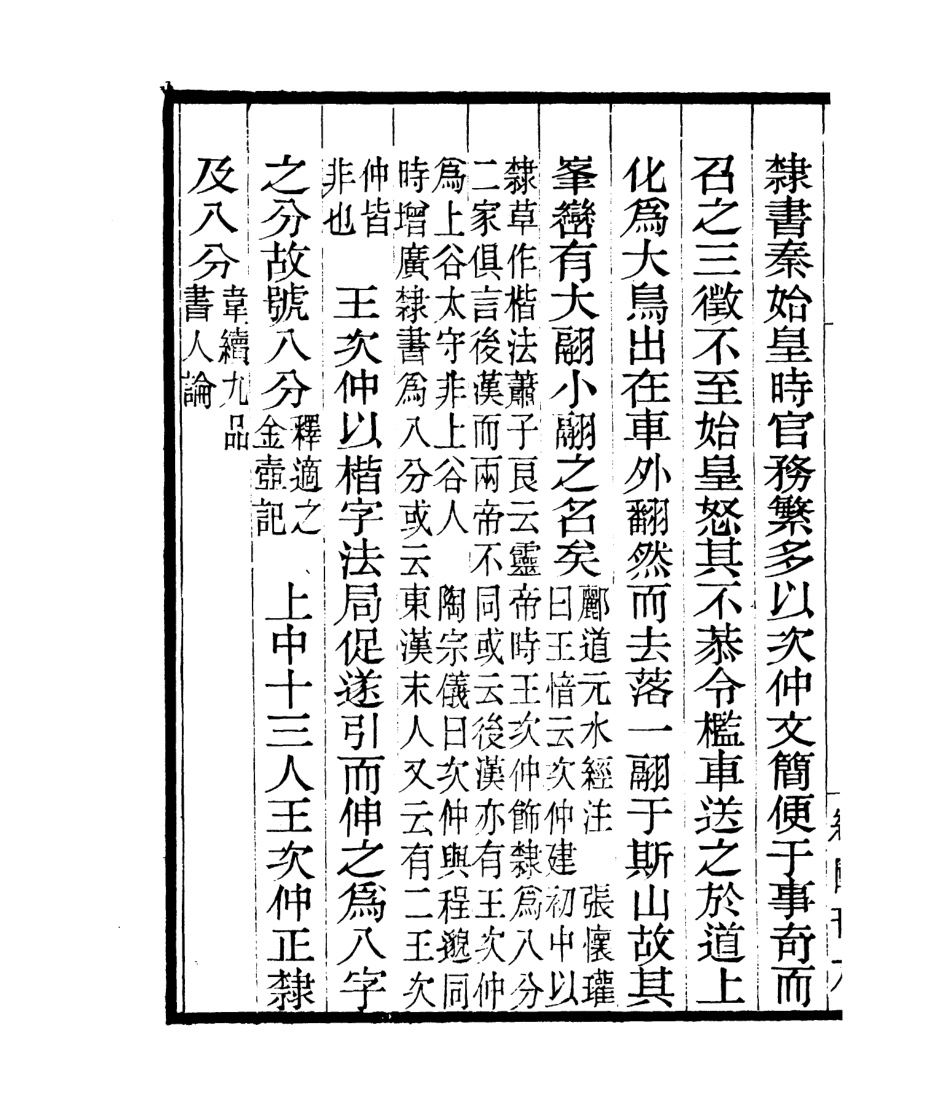 隸書秦始皇時官務繁多以次仲文簡便于事奇而
召之三徵不至始皇怒其不恭令檻車送之於道上
化爲大鳥出在車外翻然而去落一翮于斯山故其
峯巒有大翮小翮之名矣
酈道元水經注 張懷瓘
曰王愔云次仲建初中以
隸草作楷法蕭子良云靈帝時王次仲飾隸爲八分
二家俱言後漢而兩帝不同或云後漢亦有王次仲
爲上谷太守非上谷人 陶宗儀曰次仲與程邈同
時增廣隸書爲八分或云東漢末人又云有二王次
仲皆
非也
王次仲以楷字法局促遂引而伸之爲八字
之分故號八分
釋適之
金壺記
上中十三人王次仲正隸
及八分
韋續九品
書人論